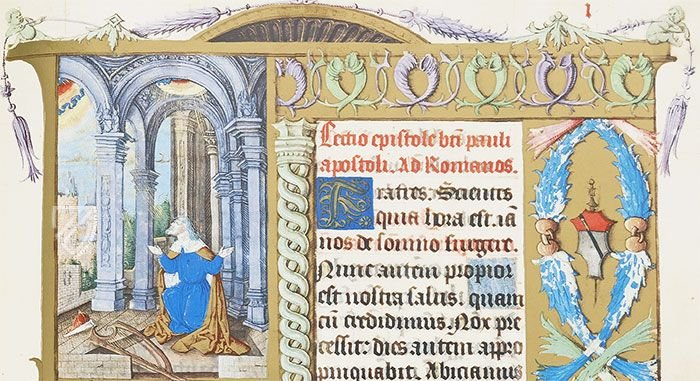 1
Lectio epistole bti pauli
apostoli. Ad Romanos.
Fratres: Scientes
quia hora est iā
nos de somno surgere.
Nunc autem propior
est nostra salus. quam
cū credidimus Nox pre
cessit: dies autem appro
pinquabit. Abiciamus